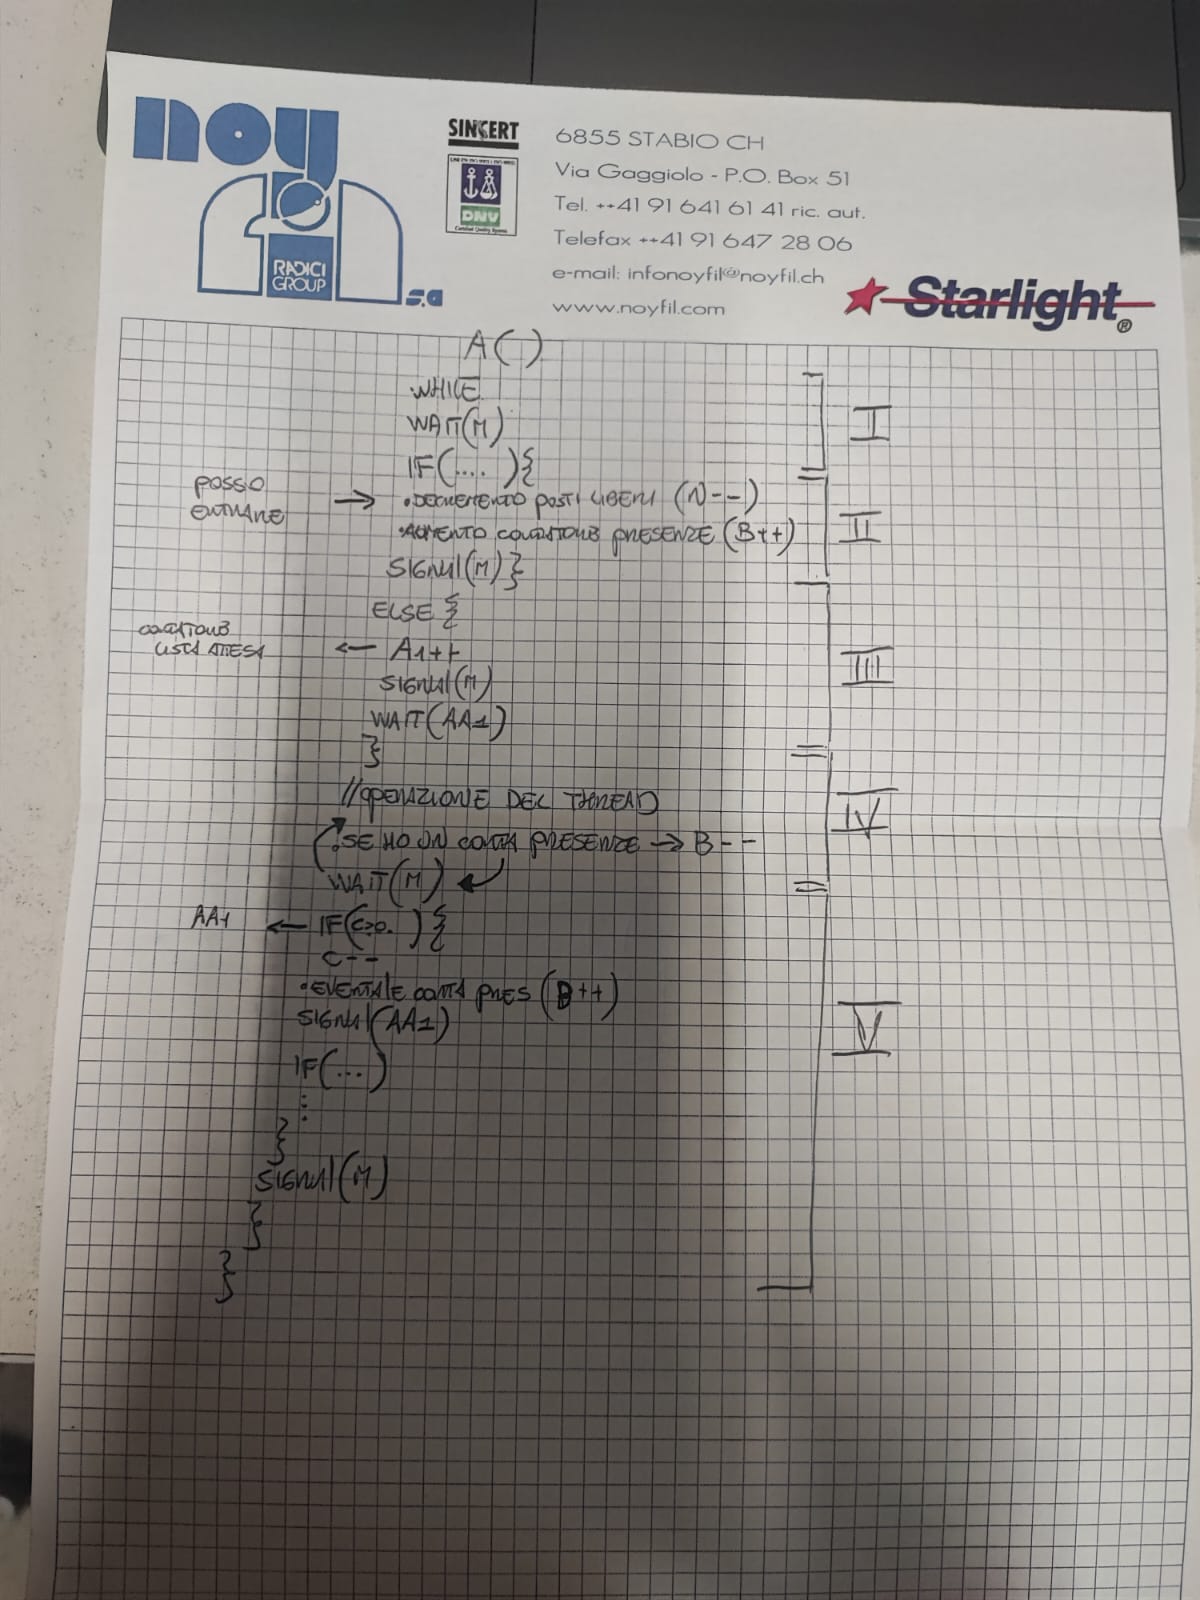 noy
RADICI
GROUP
s.a
SINCERT
DNV
6855 STABIO CH
Via Gaggiolo - P.O. Box 51
Tel. ++41 91 641 61 41 ric. aut.
Telefax ++41 91 647 28 06
e-mail: infonoyfil@noyfil.ch
www.noyfil.com
Starlight®
A()
WHILE
WAIT(M)
IF(....){
POSSO
ENTRARE
→ •DECREMENTO POSTI LIBERI (N--)
•AUMENTO CONTATORE PRESENZE (B++)
SIGNAL(M)}
ELSE {
CONTATORE
LISTA ATTESA
← A1++
SIGNAL(M)
WAIT(AA1)
}
//OPERAZIONE DEL THREAD
•SE HO UN CONTA PRESENZE → B--
WAIT(M)
AA1 ← IF(C>0. ){
C--
•EVENTALE CONTA PRES (B++)
SIGNAL(AA1)
IF(...)
⋮
}
SIGNAL(M)
}
}
I
II
III
IV
V